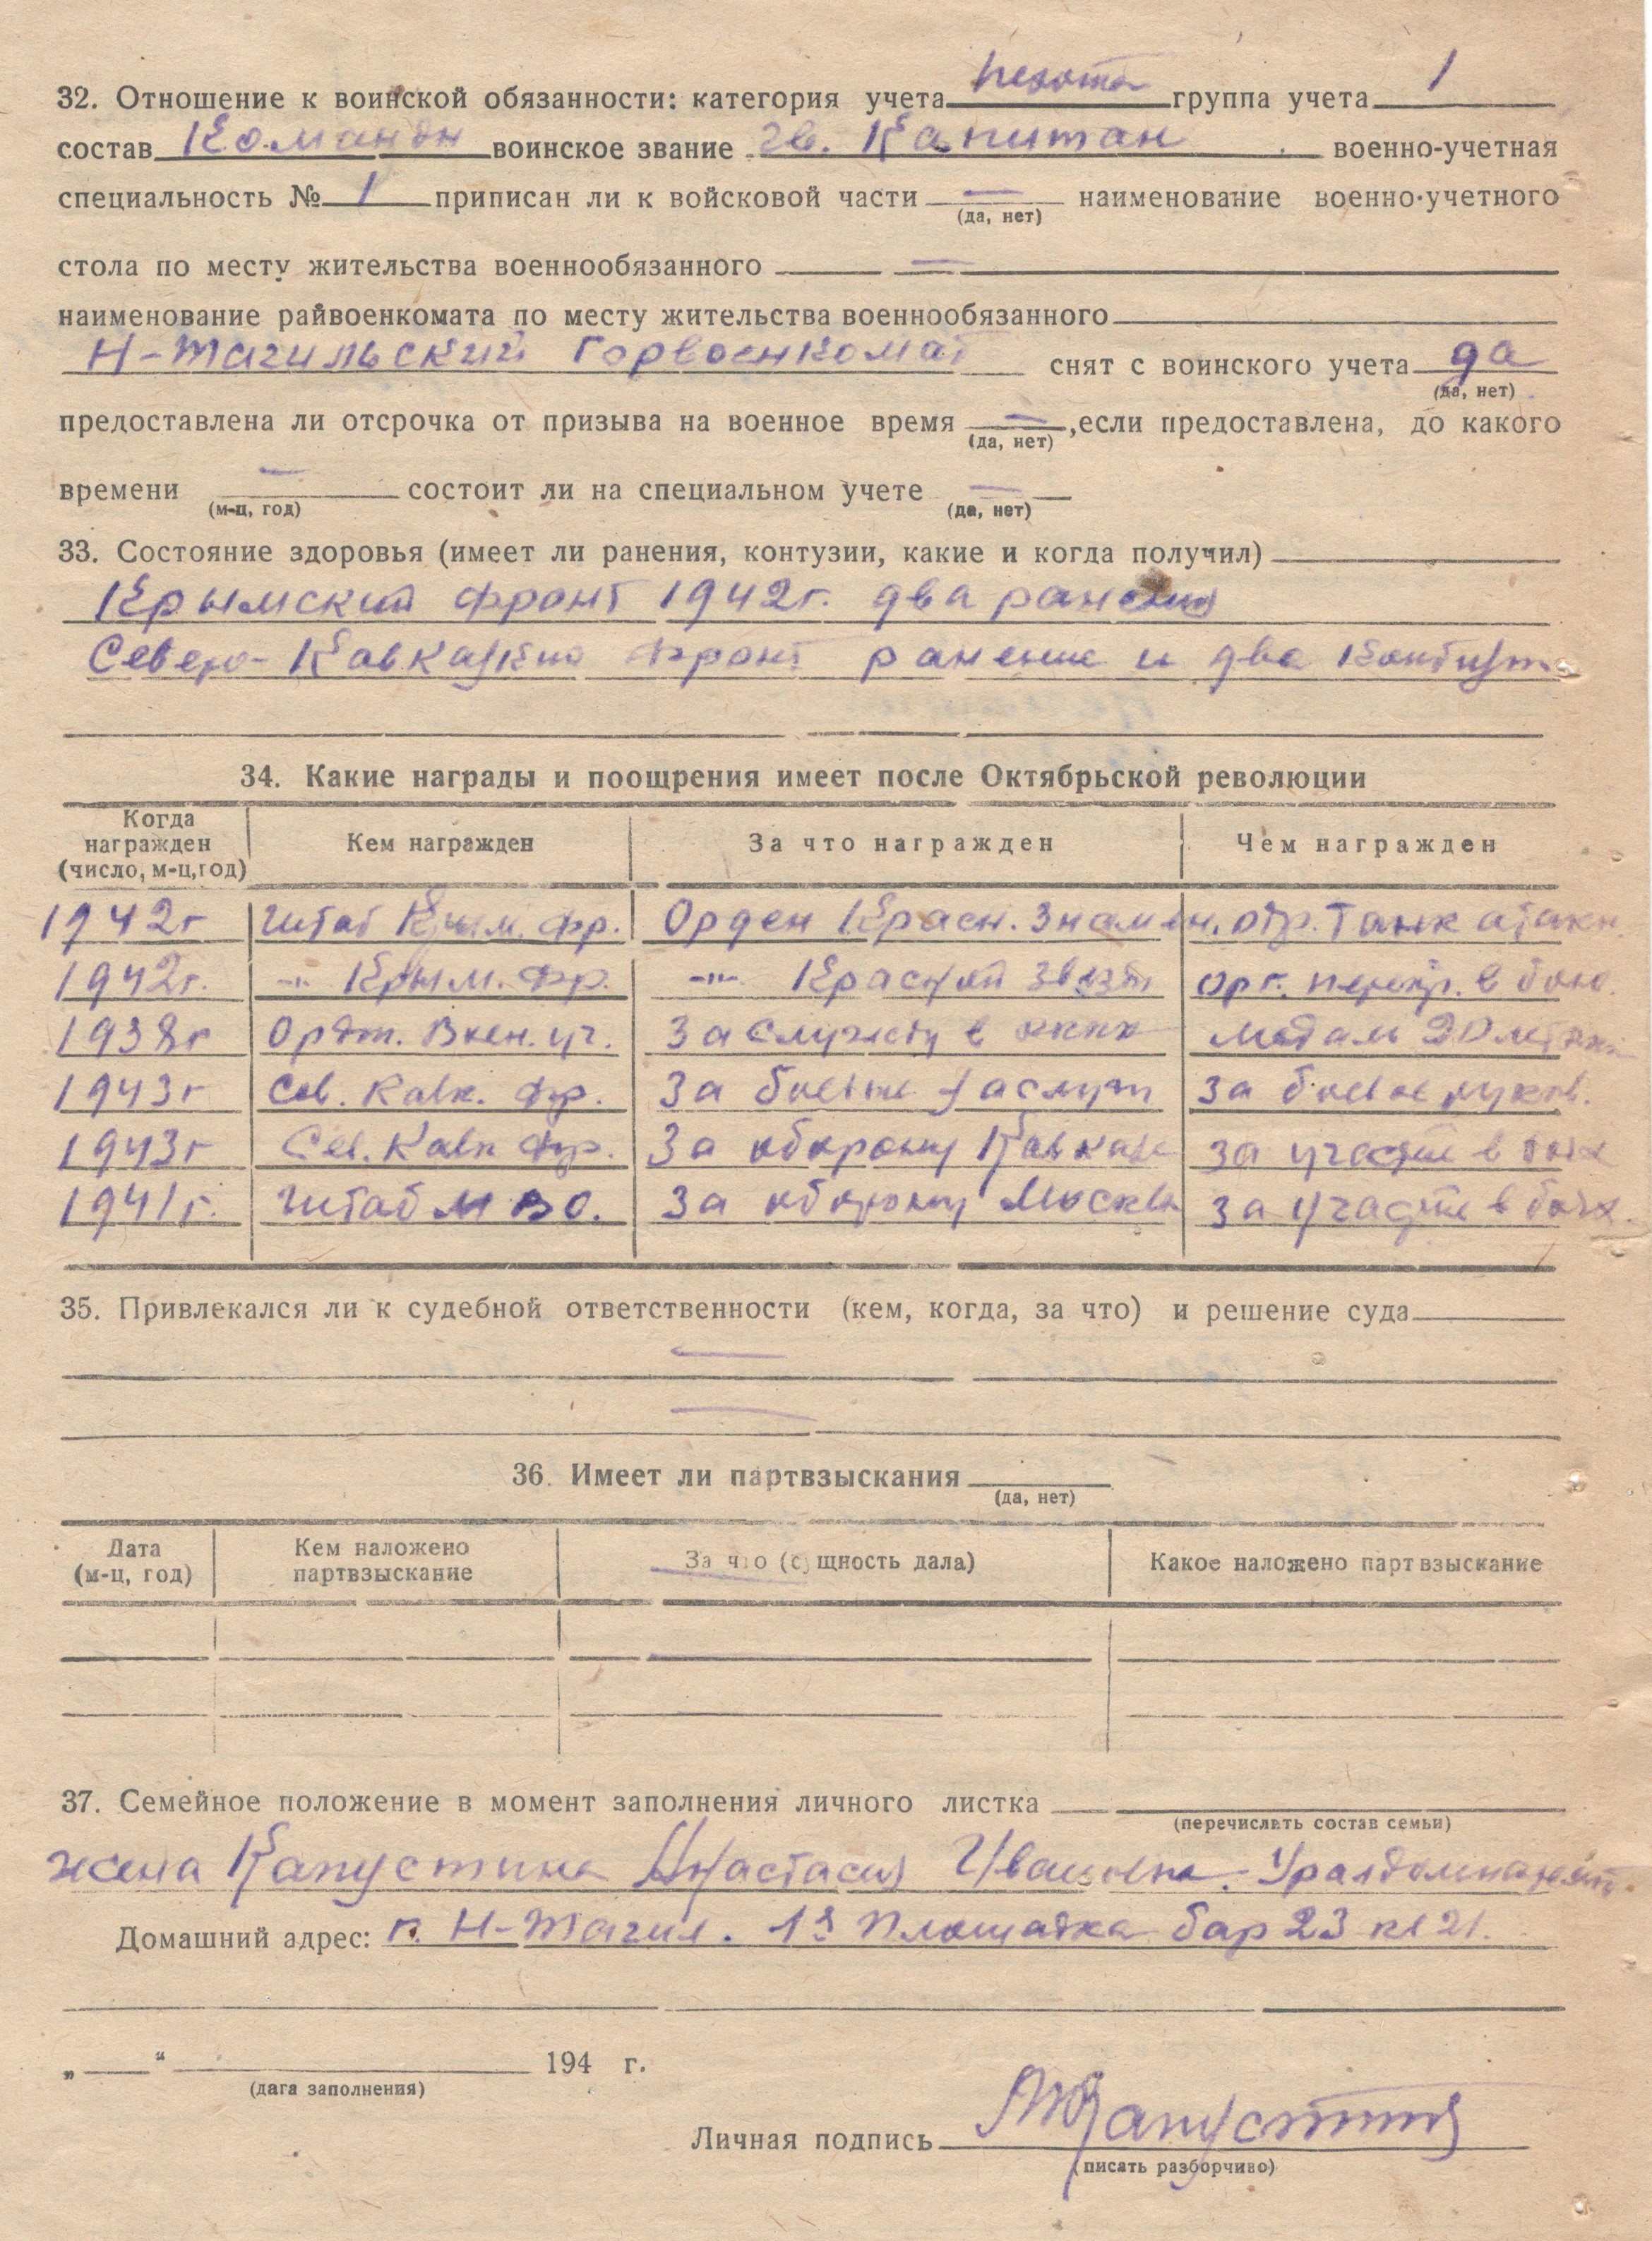 32. Отношение к воинской обязанности: категория учета пехота группа учета 1
состав Командн воинское звание гв. Капитан военно-учетная
специальность № 1 приписан ли к войсковой части — наименование военно-учетного
(да, нет)
стола по месту жительства военнообязанного —
наименование райвоенкомата по месту жительства военнообязанного
Н-Тагильский Горвоенкомат снят с воинского учета да
(да, нет)
предоставлена ли отсрочка от призыва на военное время —, если предоставлена, до какого
(да, нет)
времени — состоит ли на специальном учете —
(м-ц, год) (да, нет)
33. Состояние здоровья (имеет ли ранения, контузии, какие и когда получил)
Крымский фронт 1942г. два ранения
Северо-Кавказкий фронт ранение и два
34. Какие награды и поощрения имеет после Октябрьской революции
Когда награжден (число, м-ц, год) Кем награжден За что награжден Чем награжден
1942г Штаб Крым. фр. Орден Красн. Знамен. отр. Танк атаки
1942г. -"- Крым. Фр. -"- Красной звезды орг. перепр. в бою.
1938г Ордж. Воен. уч. За службу в медаль 20 лет
1943г Сев. Кавк. фр. За боевые заслуги за боевое руков.
1943г Сев. Кавк фр. За оборону Кавказа за участие в боях
1941г. Штаб МВО. За оборону Москвы за участие в боях.
35. Привлекался ли к судебной ответственности (кем, когда, за что) и решение суда
—
—
36. Имеет ли партвзыскания
(да, нет)
Дата (м-ц, год) Кем наложено партвзыскание За что (сущность дала) Какое наложено партвзыскание
37. Семейное положение в момент заполнения личного листка
(перечислить состав семьи)
жена Капустина Анастасия Ивановна.
Домашний адрес: г. Н-Тагил. 19 Площадка бар 23 кв 21.
„ “ 194 г.
(дата заполнения)
Личная подпись МКапустин
(писать разборчиво)